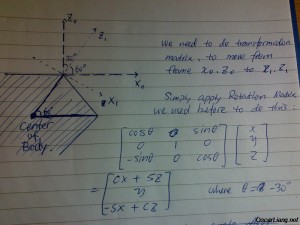 Z₀
Z₁
30°
60°
X₀
X₁
60°
Center
of
Body.
We need to do transformation
matrix, to move from
frame x₀.z₀ to z₁.z₁
Simply apply Rotation Matrix
we used before to do this:
[cosθ 0 sinθ] [x]
[0 1 0] [y]
[-sinθ 0 cosθ] [z]
= [cx + sz]
[y]
[-sx + cz]
where θ = -30°
OscarLiang.net